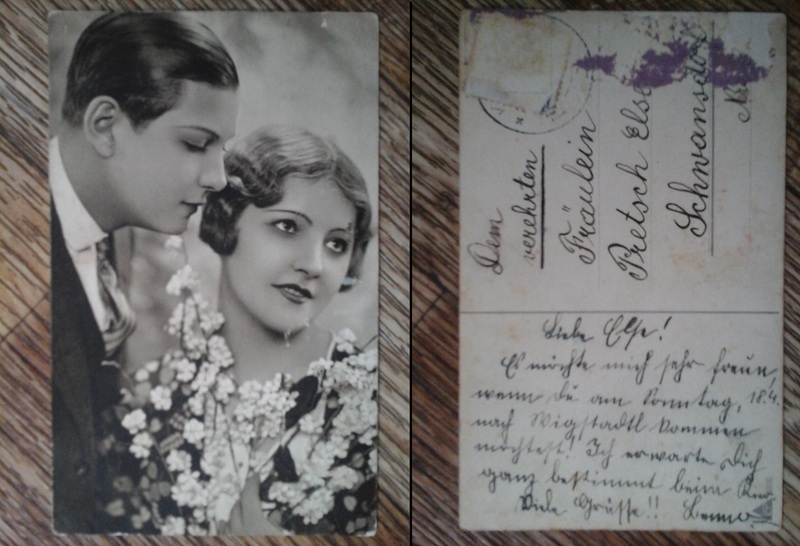 Dem
verehrten
Fräulein
Pretsch Else
Schwansdorf
N
Liebe Else!
Es möchte mich sehr freun,
wenn Du am Sonntag, 18.4.
nach Wigstadtl kommen
möchtest! Ich erwarte Dich
ganz bestimmt beim
Viele Grüsse!! Benno